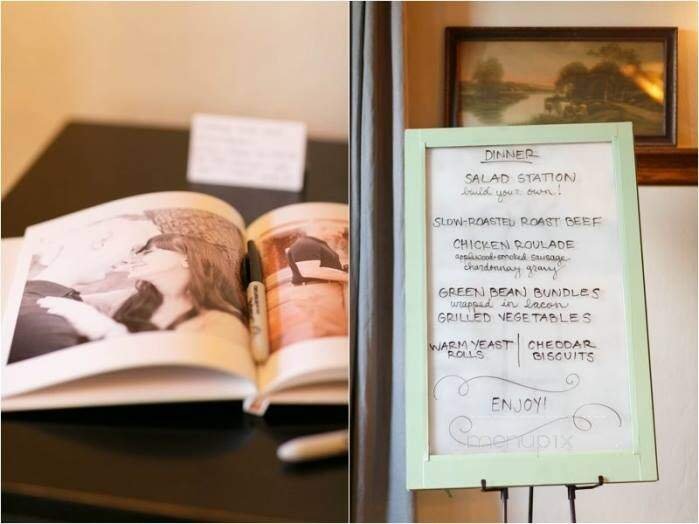 DINNER
SALAD STATION
build your own!
SLOW-ROASTED ROAST BEEF
CHICKEN ROULADE
applewood-smoked sausage
chardonnay gravy
GREEN BEAN BUNDLES
wrapped in bacon
GRILLED VEGETABLES
WARM YEAST ROLLS
CHEDDAR BISCUITS
ENJOY!
menupix